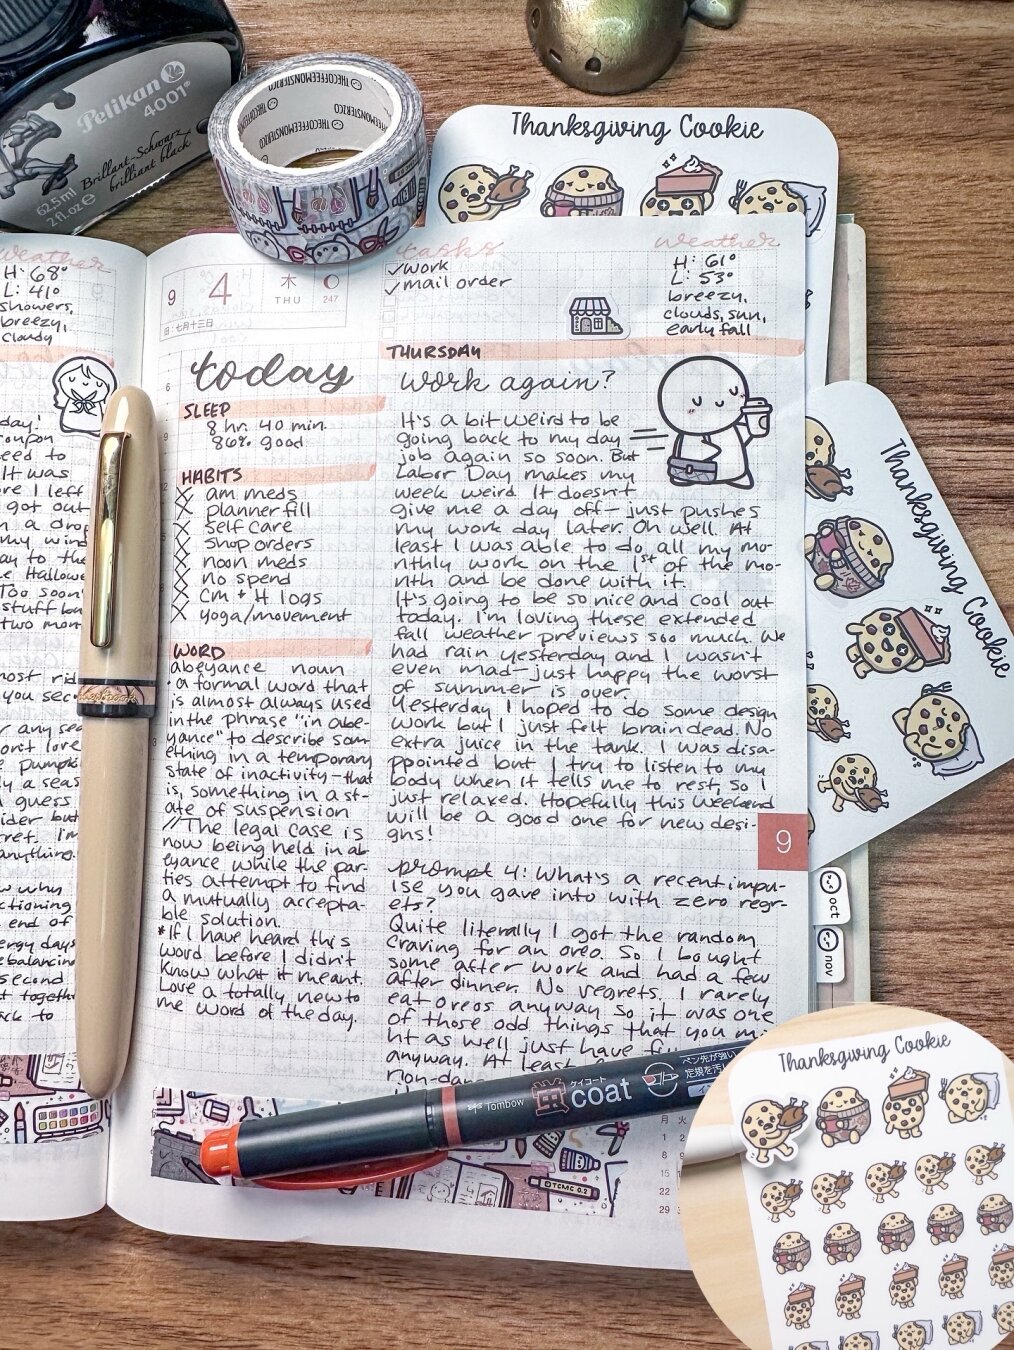 Pelikan
4001®
Brillant-Schwarz
brilliant black
62.5ml e
2 fl. oz
THECOFFEEMONSTERZCO
Thanksgiving Cookie
weather
H: 68°
L: 41°
showers,
breezy,
cloudy
9 4 木
THU 247
旧:七月十三日
today
SLEEP
8 hr. 40 min.
86% good
HABITS
X am meds
X planner fill
X self care
X shop orders
X noon meds
X no spend
X cm + H logs
X yoga/movement
WORD
abeyance noun
• a formal word that
is almost always used
in the phrase "in abe-
yance" to describe som-
ething in a temporary
state of inactivity—that
is, something in a st-
ate of suspension
//The legal case is
now being held in ab-
eyance while the par-
ties attempt to find
a mutually accepta-
ble solution.
*If I have heard this
word before I didn't
know what it meant.
Love a totally new to
me word of the day.
tasks
✓work
✓mail order
weather
H: 61°
L: 53°
breezy,
clouds, sun,
early fall
THURSDAY
work again?
It's a bit weird to be
going back to my day
job again so soon. But
Labor Day makes my
week weird. It doesn't
give me a day off—just pushes
my work day later. Oh well. At
least I was able to do all my mo-
nthly work on the 1st of the mo-
nth and be done with it.
It's going to be so nice and cool out
today. I'm loving these extended
fall weather previews soo much. We
had rain yesterday and I wasn't
even mad—just happy the worst
of summer is over.
Yesterday I hoped to do some design
work but I just felt braindead. No
extra juice in the tank. I was disa-
ppointed but I try to listen to my
body when it tells me to rest, so I
just relaxed. Hopefully this weekend
will be a good one for new desi-
gns!
prompt 4: What's a recent impu-
lse you gave into with zero regr-
ets?
Quite literally I got the random
craving for an oreo. So I bought
some after work and had a few
after dinner. No regrets. I rarely
eat oreos anyway so it was one
of those odd things that you mi-
ght as well just have
anyway. At least
9
oct
nov
Thanksgiving Cookie
Tombow 蛍 ケイコート
coat
ペン先が強い
TCMC 0.2
1
8
15
22
29
Thanksgiving Cookie